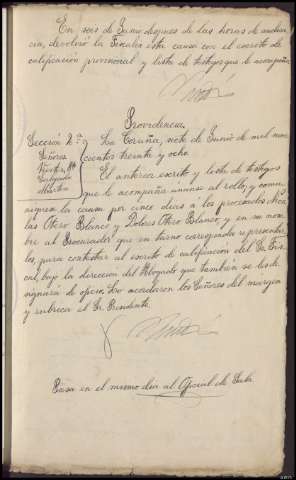 En seis de Junio despues de las horas de audien
cia, devolvió la Fiscalía esta causa con el escrito de
calificación provisional y lista de testigos que le acompaña
Providencia
Sección 2ª
Señores
La Coruña, siete de Junio de mil nove
cientos treinta y ocho
El anterior escrito y lista de testigos
que le acompaña unanse al rollo, y comu
niquese la causa por cinco dias a los procesados
Otero Blanco y Dolores Otero Blanco, y en su nom
bre al Procurador que en turno corresponda representar
los, para contestar al escrito de calificación del Sr. Fis
cal, bajo la dirección del Abogado que tambien se les de
signará de oficio. Lo acordaron los Señores del margen
y rubrica el Sr. Presidente.
Pasa en el mismo dia al Oficial de Sala